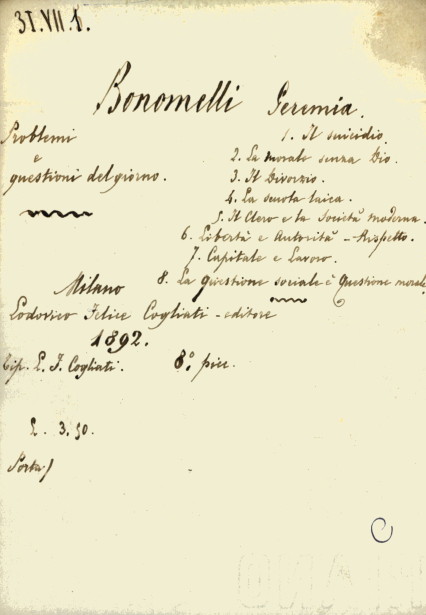 31.VII.1.
Bonomelli Geremia.
Problemi
e
questioni del giorno.
1. Il suicidio.
2. La morale senza Dio.
3. Il Divorzio.
4. La scuola laica.
5. Il Clero e la Società moderna.
6. Libertà e Autorità - Rispetto.
7. Capitale e Lavoro.
8. La Questione sociale è Questione morale
Milano
Lodovico Felice Cogliati - editore
1892.
Tip. L. F. Cogliati. 8.° picc.
L. 3.50.
Porta)
C